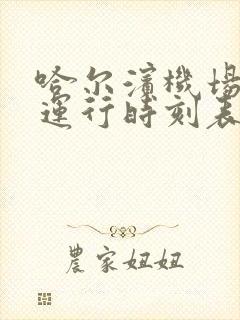 哈尔濱機場
運行時刻表
農家妞妞